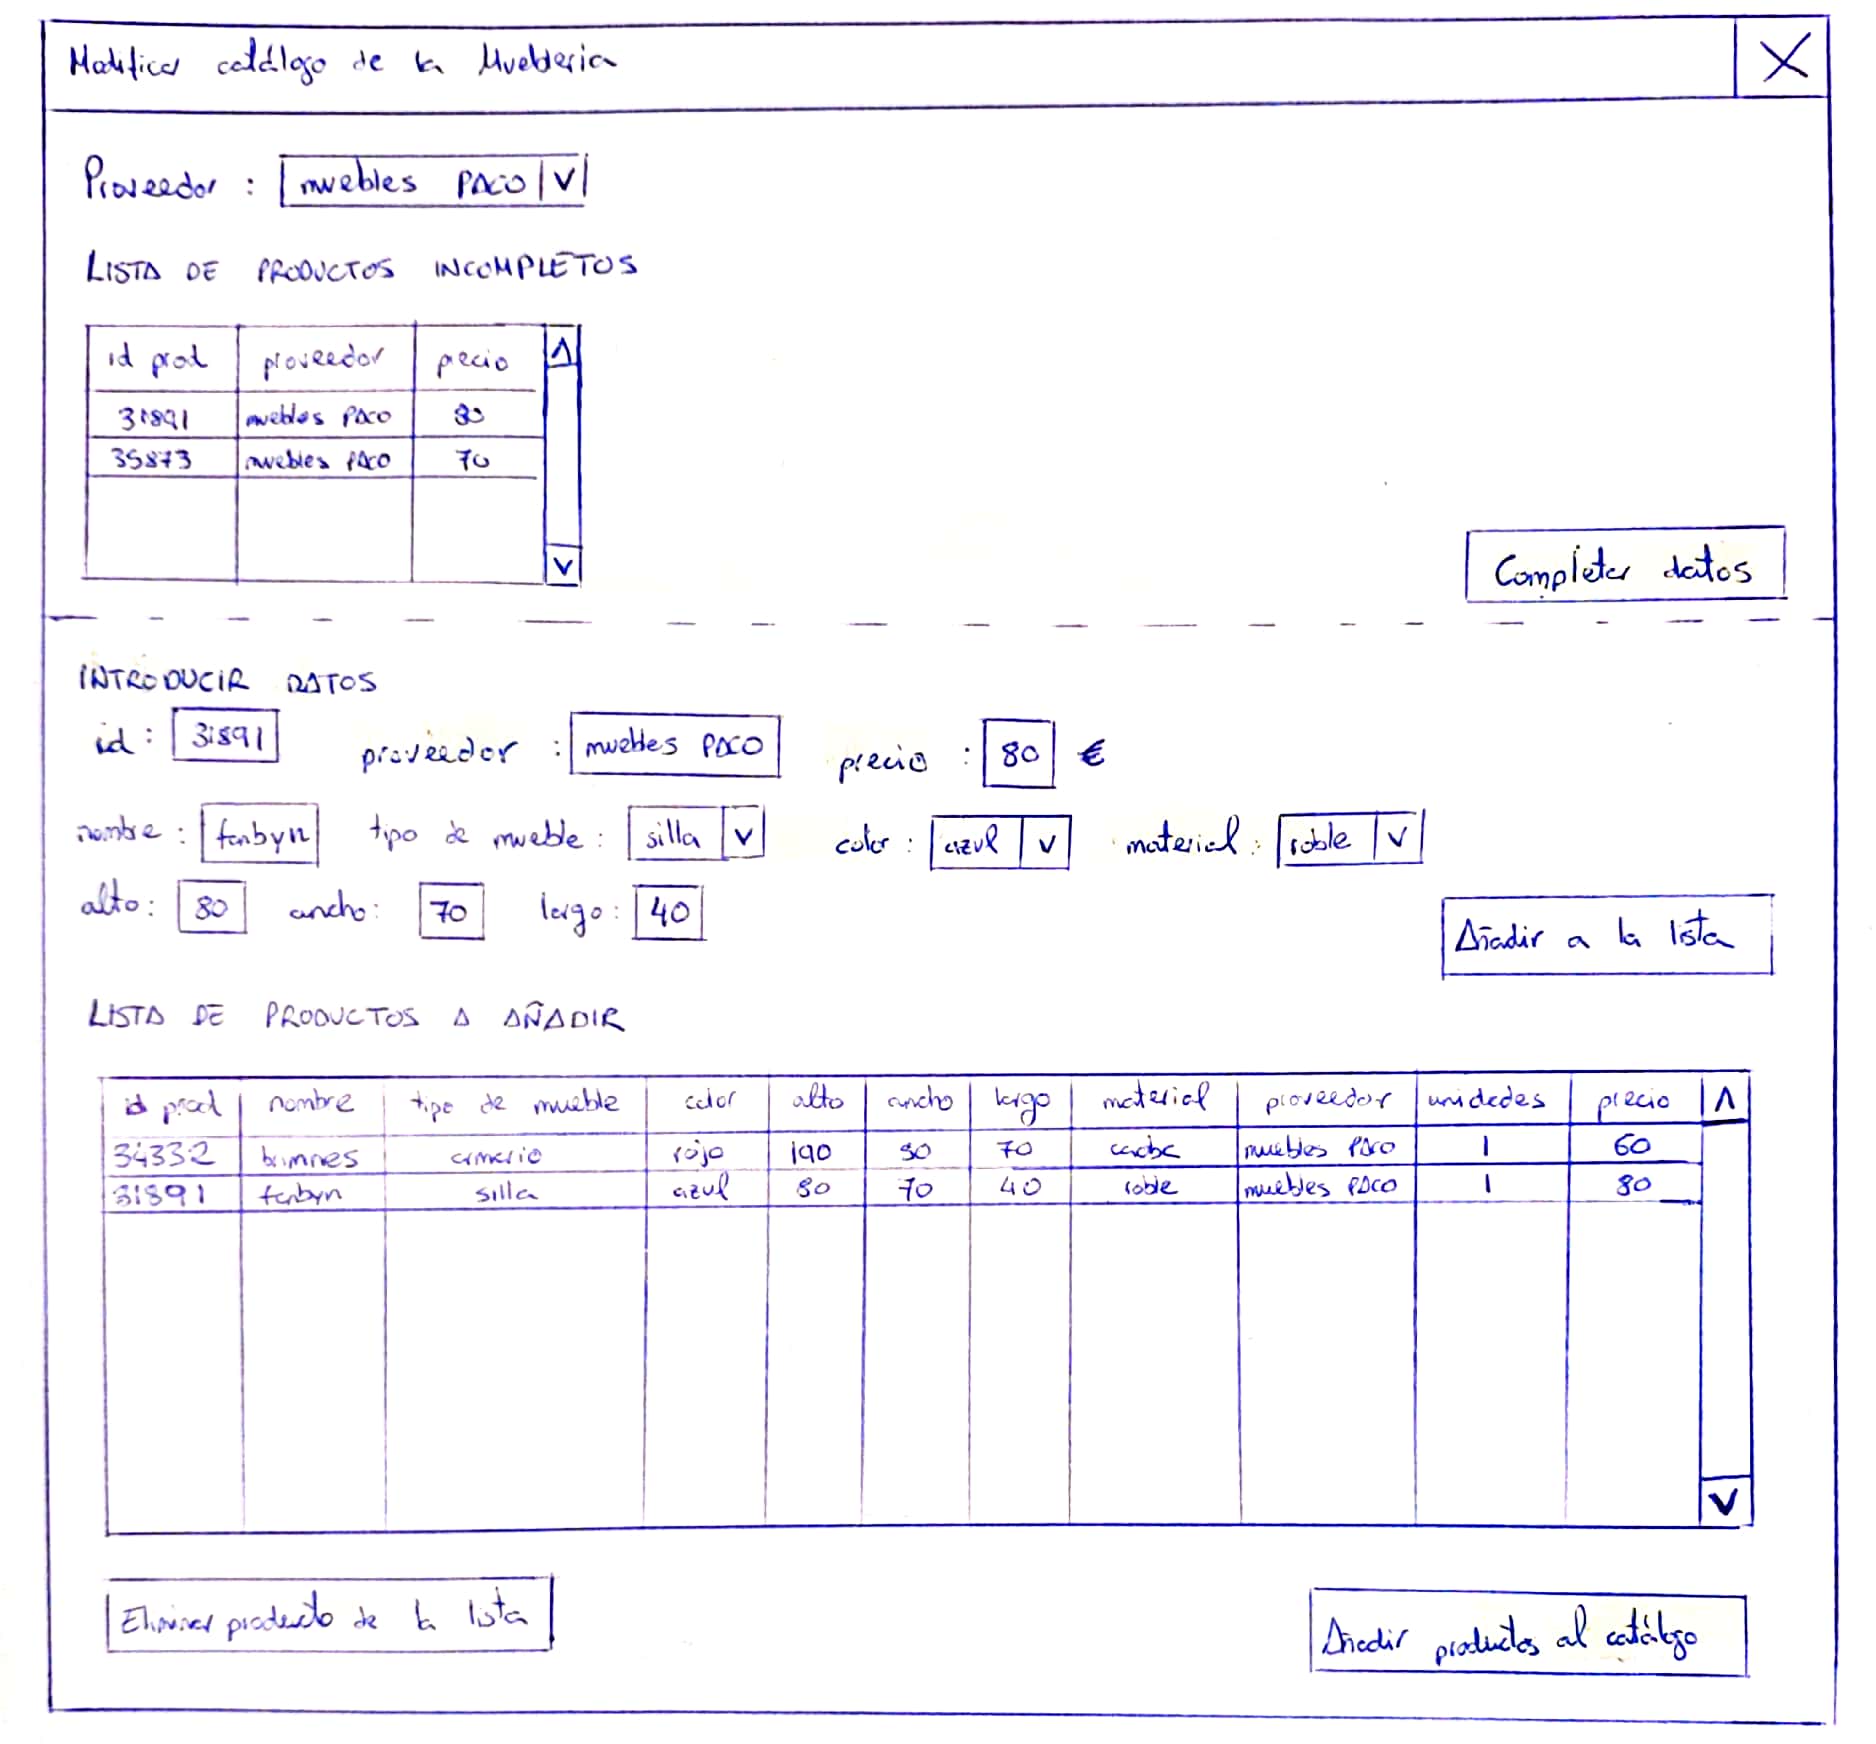 Modificar catálogo de la Muebleria X
Proveedor : muebles PACO V
LISTA DE PRODUCTOS INCOMPLETOS
id prod proveedor precio
31891 muebles PACO 80
35873 muebles PACO 70
Completar datos
INTRODUCIR DATOS
id : 31891 proveedor : muebles PACO precio : 80 €
nombre : fanbyn tipo de mueble : silla V color : azul V material : roble V
alto : 80 ancho : 70 largo : 40
Añadir a la lista
LISTA DE PRODUCTOS A AÑADIR
id prod nombre tipo de mueble color alto ancho largo material proveedor unidades precio
34332 brimnes armario rojo 190 80 70 caoba muebles PACO 1 60
31891 fanbyn silla azul 80 70 40 roble muebles PACO 1 80
Eliminar producto de la lista
Añadir productos al catálogo